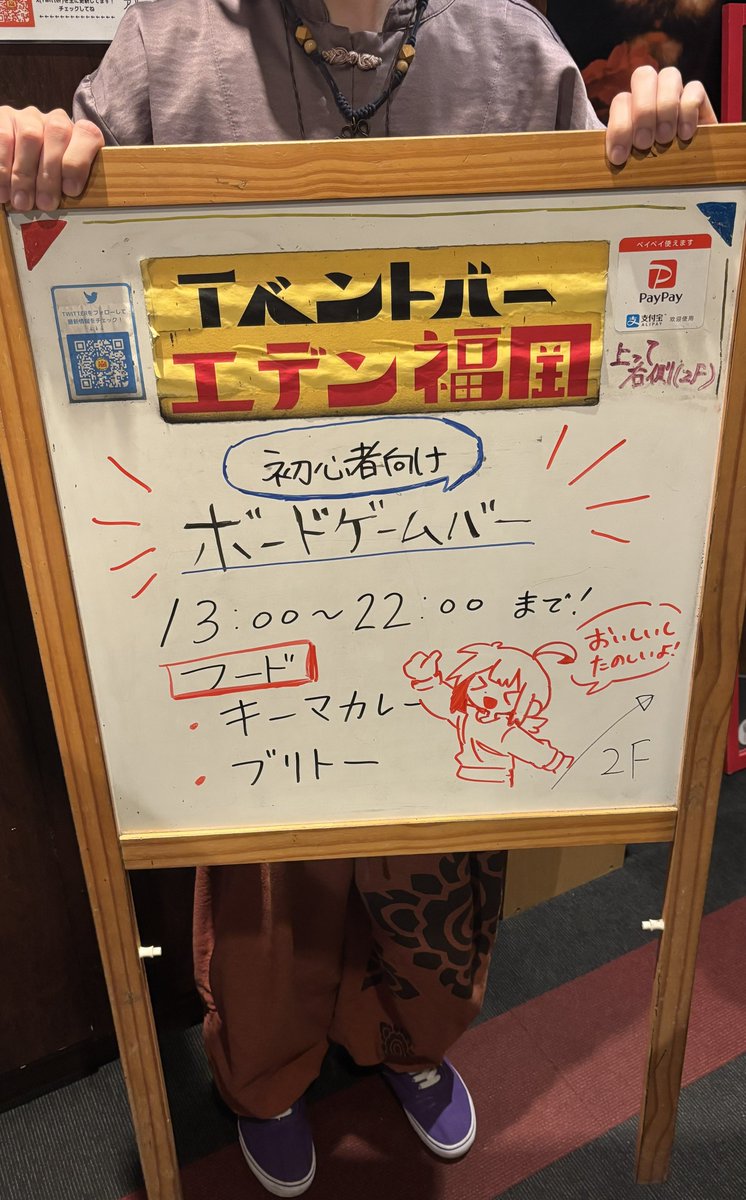 X(Twitter)を主に更新してます!
チェックしてね
TWITTERをフォローして
最新情報をチェック!
イベントバー
エデン福岡
ペイペイ使えます
PayPay
支付宝 欢迎使用
ALIPAY
上って
右側(2F)
初心者向け
ボードゲームバー
13:00~22:00 まで!
フード
・キーマカレー
・ブリトー
おいしいし
たのしいよ!
2F